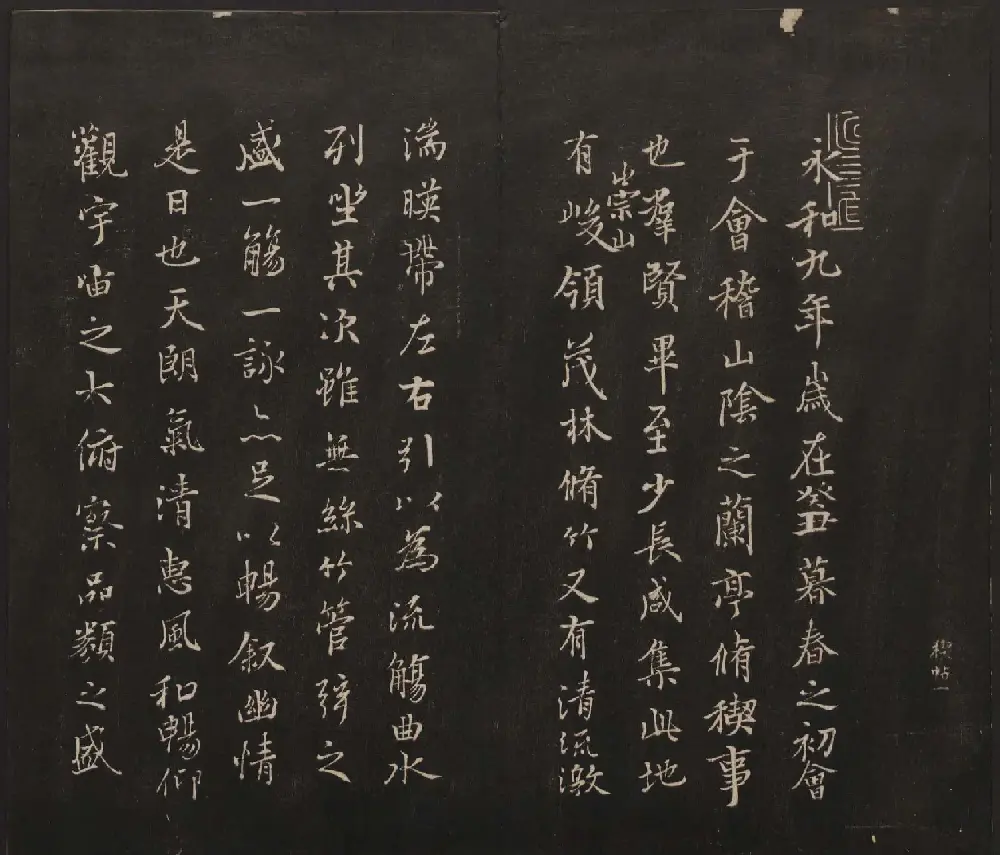 永和九年歲在癸丑暮春之初會
于會稽山陰之蘭亭脩稧事
也羣賢畢至少長咸集此地
有崇山峻領茂林脩竹又有清流激
湍暎帶左右引以為流觴曲水
列坐其次雖無絲竹管弦之
盛一觴一詠亦足以暢敘幽情
是日也天朗氣清惠風和暢仰
觀宇宙之大俯察品類之盛
稧帖一